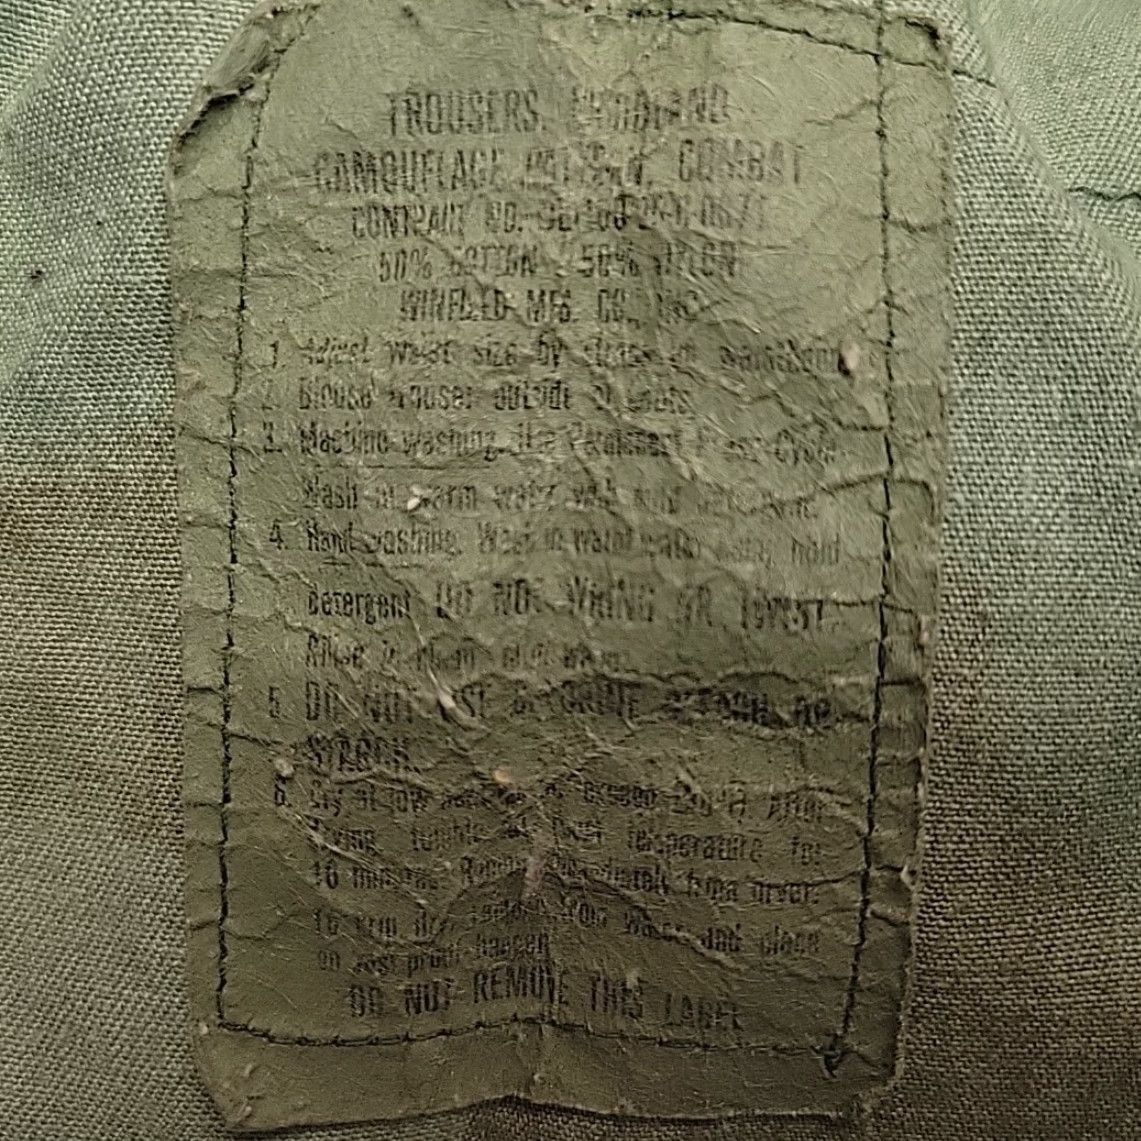 TROUSERS, WOODLAND
CAMOUFLAGE PATTERN, COMBAT
CONTRACT NO.
50% COTTON 50% NYLON
WINFIELD MFG. CO., INC.
1. Adjust waist size by
2. Blouse trouser outside of boots
3. Machine washing. Use Permanent Press Cycle.
Wash in warm water with mild detergent.
4. Hand washing. Wash in warm water using mild
detergent. DO NOT WRING OR TWIST.
Rinse in clean
5. DO NOT USE CHLORINE BLEACH OR
STARCH.
6. Dry at low After
drying, tumble at temperature for
10 minutes. Remove immediately from dryer.
To drip dry, remove from water and place
on rust proof hanger.
DO NOT REMOVE THIS LABEL